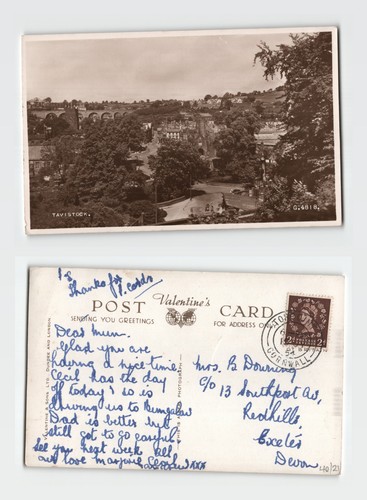 TAVISTOCK.
G.4818.
P.S
Thanks for
cards
POST Valentine's CARD
SENDING YOU GREETINGS
FOR ADDRESS ONLY
Dear Mum.
Glad you are
having a nice time
Cecil has the day
off today so is
driving us to Bungalow
Dad is better but
still got to go careful
See you next week. All
our love Marjorie Cecil
xxx
Mrs. B Downing
C/o 13 Southport Av,
Redhills,
Exeter
Devon
CORNWALL
VALENTINE & SONS LTD. DUNDEE AND LONDON
PHOTOGRAPH